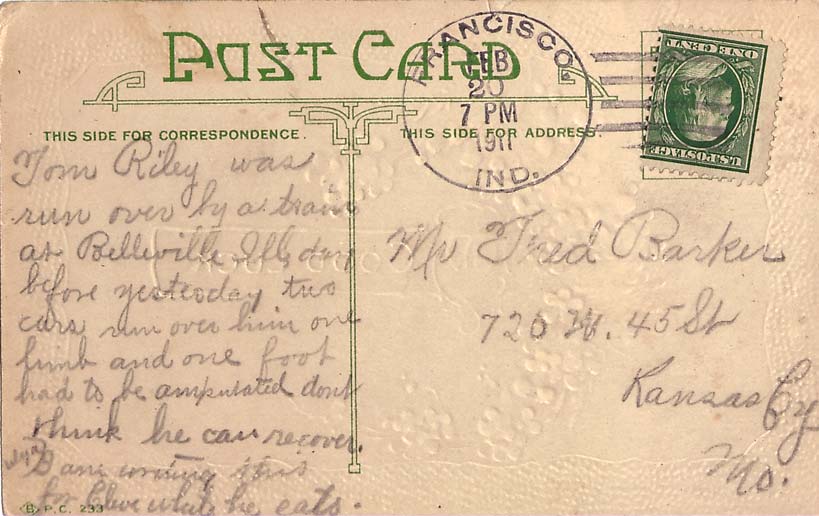 POST CARD
THIS SIDE FOR CORRESPONDENCE.
THIS SIDE FOR ADDRESS.
FRANCISCO.
FEB
20
7 PM
1911
IND.
U.S. POSTAGE
ONE CENT
Tom Riley was
run over by a train
at Belleville Ill, day
before yesterday two
cars run over him one
limb and one foot
had to be amputated dont
think he can recover.
I am writing this
for Cleve while he eats.
Mr Fred Barker
726 W. 45 St
Kansas Cy
Mo.
B. P. C. 233